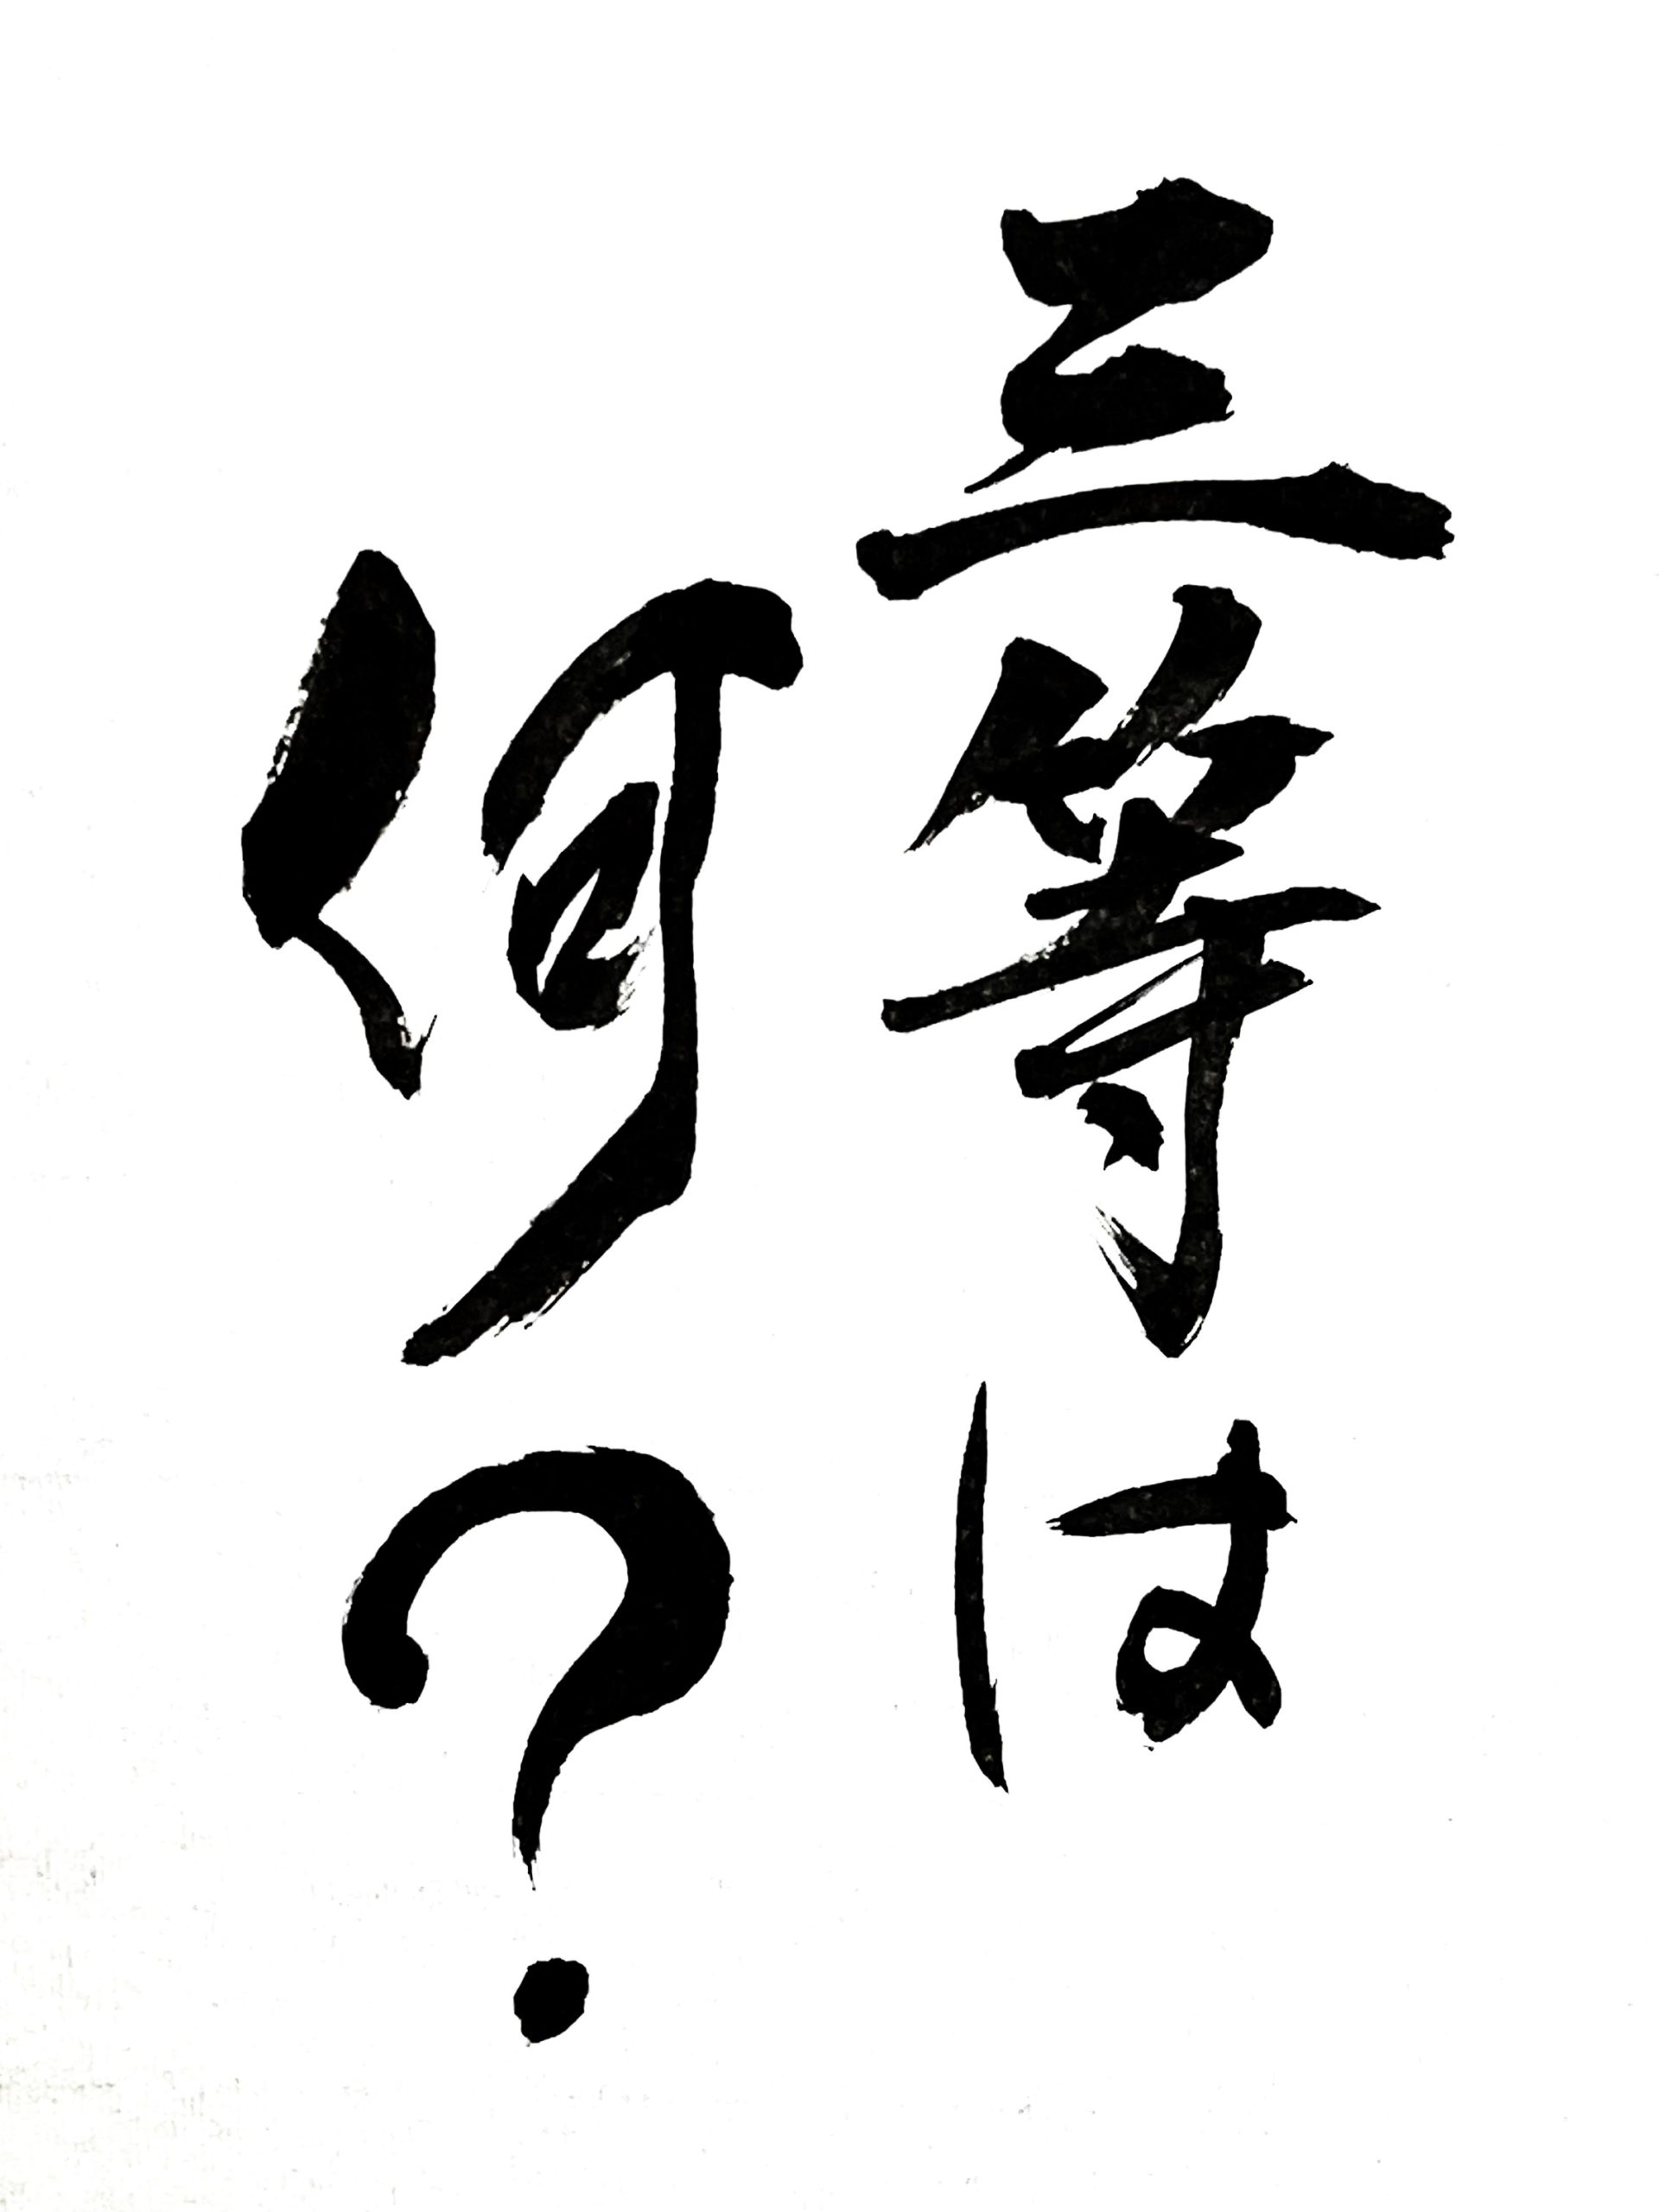 三等は
何？